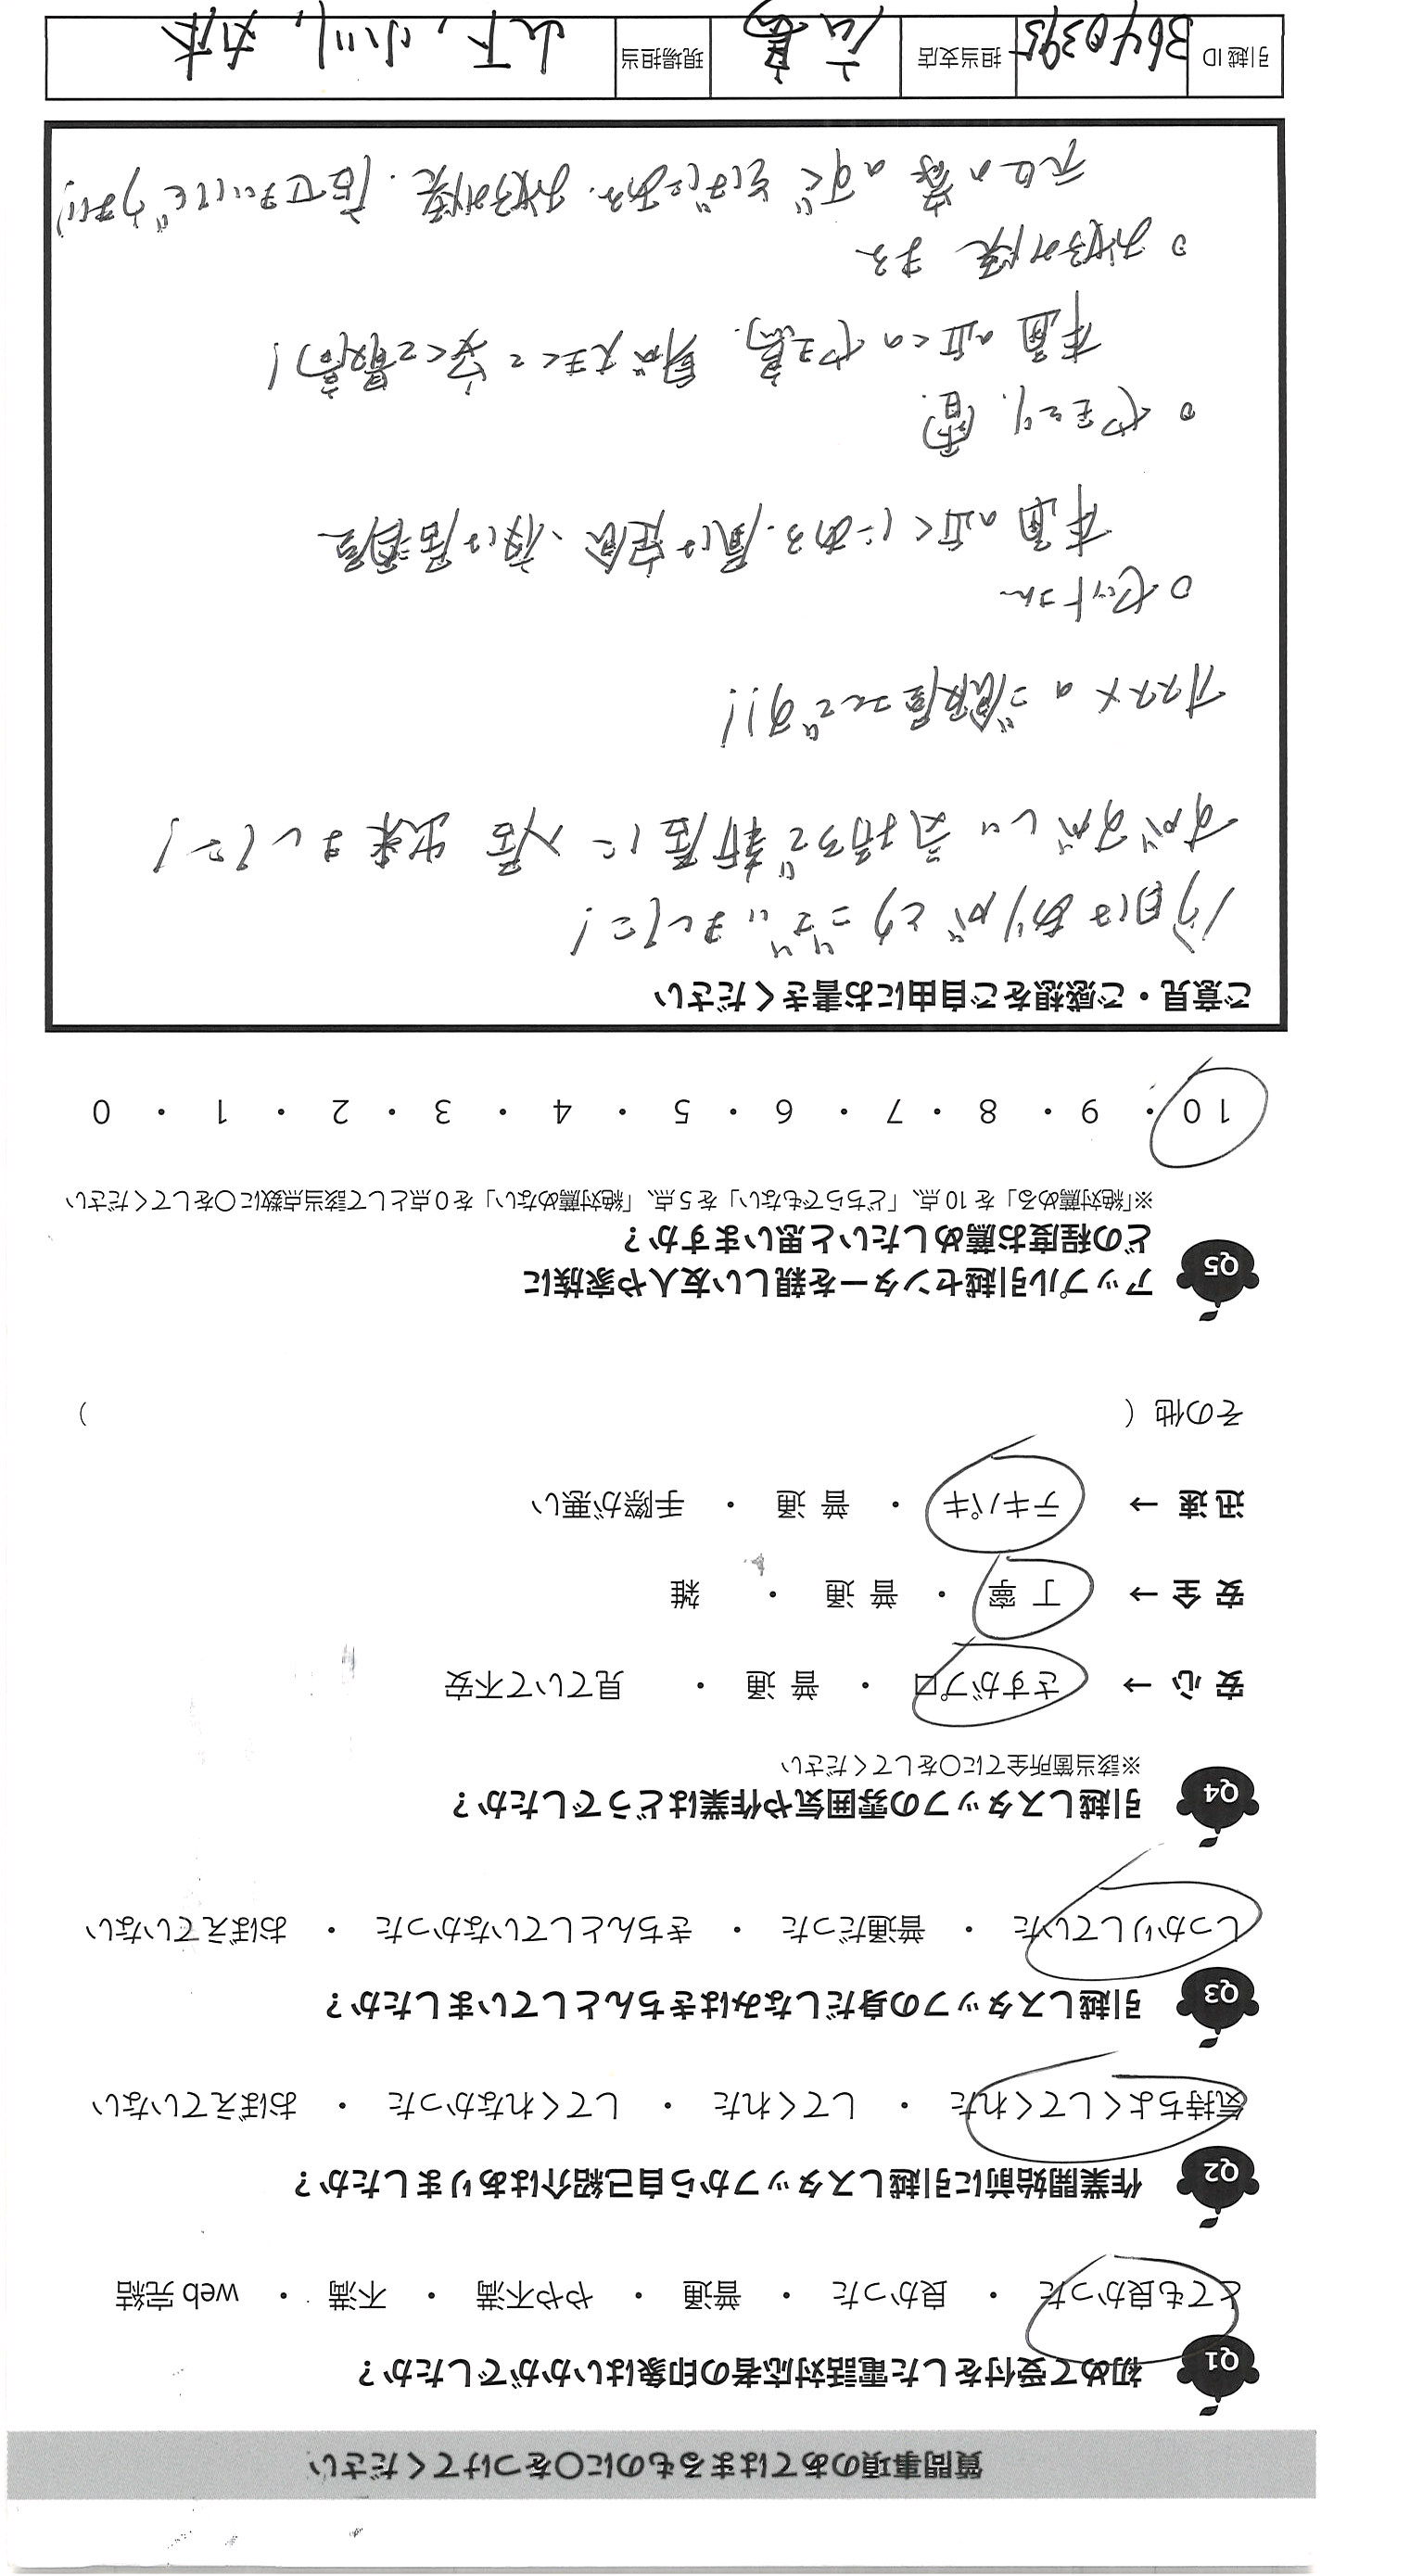 質問事項のあてはまるものに〇をつけてください
Q1 初めて受付をした電話対応者の印象はいかがでしたか？
とても良かった ・ 良かった ・ 普通 ・ やや不満 ・ 不満 ・ web 完結
Q2 作業開始前に引越しスタッフから自己紹介はありましたか？
気持ちよくしてくれた ・ してくれた ・ してくれなかった ・ おぼえていない
Q3 引越しスタッフの身だしなみはきちんとしていましたか？
しっかりしていた ・ 普通だった ・ きちんとしていなかった ・ おぼえていない
Q4 引越しスタッフの雰囲気や作業はどうでしたか？
※該当箇所全てに〇をしてください
安 心 → さすがプロ ・ 普 通 ・ 見ていて不安
安 全 → 丁 寧 ・ 普 通 ・ 雑
迅 速 → テキパキ ・ 普 通 ・ 手際が悪い
その他（ ）
Q5 アップル引越センターを親しい友人や家族に
どの程度お薦めしたいと思いますか？
※「絶対薦める」を 10 点、「どちらでもない」を 5 点、「絶対薦めない」を 0 点として該当点数に〇をしてください
10 ・ 9 ・ 8 ・ 7 ・ 6 ・ 5 ・ 4 ・ 3 ・ 2 ・ 1 ・ 0
ご意見・ご感想をご自由にお書きください
今日はありがとうございました！
すがすがしい気持ちで新居に入居出来ました！
オススメのご飯屋さんです!!
○ セットん
本通の近くにある。昼は定食、夜は居酒屋
○ やきとり 雷
本通の近くのやき鳥。身が大きくて安くて最高！
○ お好み焼 まる
元Bの家のすぐそばにある。お好み焼。店せまいけどうまい!
引越 ID 3640395 担当支店 広島 現場担当 山下, 小川,